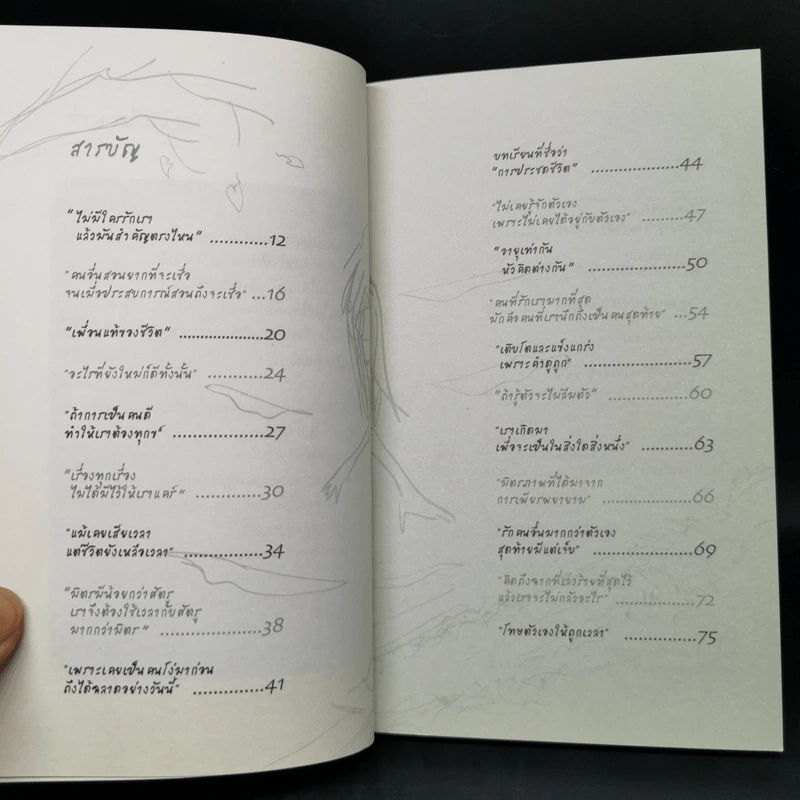 สารบัญ
"ไม่มีใครรักเรา
แล้วมันสำคัญตรงไหน" ............12
"คนอื่นสอนยากที่จะเชื่อ
จนเมื่อประสบการณ์สอนถึงจะเชื่อ" ...16
"เพื่อนแท้ของชีวิต" ................20
"อะไรที่ยังใหม่ก็ดีทั้งนั้น" ............24
"ถ้าการเป็นคนดี
ทำให้เราต้องทุกข์ ................27
"เรื่องทุกเรื่อง
ไม่ได้มีไว้ให้เราแคร์" ............30
"แม้เคยเสียเวลา
แต่ชีวิตยังเหลือเวลา" ..............34
"มิตรมีน้อยกว่าศัตรู
เราจึงต้องใช้เวลากับศัตรู
มากกว่ามิตร" ................38
"เพราะเคยเป็นคนโง่มาก่อน
ถึงได้ฉลาดอย่างวันนี้" ............41
บทเรียนที่ชื่อว่า
"การประชดชีวิต" ................44
"ไม่เคยรู้จักตัวเอง
เพราะไม่เคยได้อยู่กับตัวเอง" .........47
"อายุเท่ากัน
หัวคิดต่างกัน" ....................50
"คนที่รักเรามากที่สุด
มักคือคนที่เรานึกถึงเป็นคนสุดท้าย" ....54
"เติบโตและแข็งแกร่ง
เพราะคำดูถูก" ....................57
"ถ้ารู้ตัวจะไม่ลืมตัว" ................60
"เราเกิดมา
เพื่อจะเป็นในสิ่งใดสิ่งหนึ่ง" ...........63
"มิตรภาพที่ได้มาจาก
การเพียรพยายาม" ................66
"รักคนอื่นมากกว่าตัวเอง
สุดท้ายมีแต่เจ็บ" ..................69
"คิดถึงฉากที่เลวร้ายที่สุดไว้
แล้วเราจะไม่กลัวอะไร" ............72
"โทษตัวเองให้ถูกเวลา" .............75